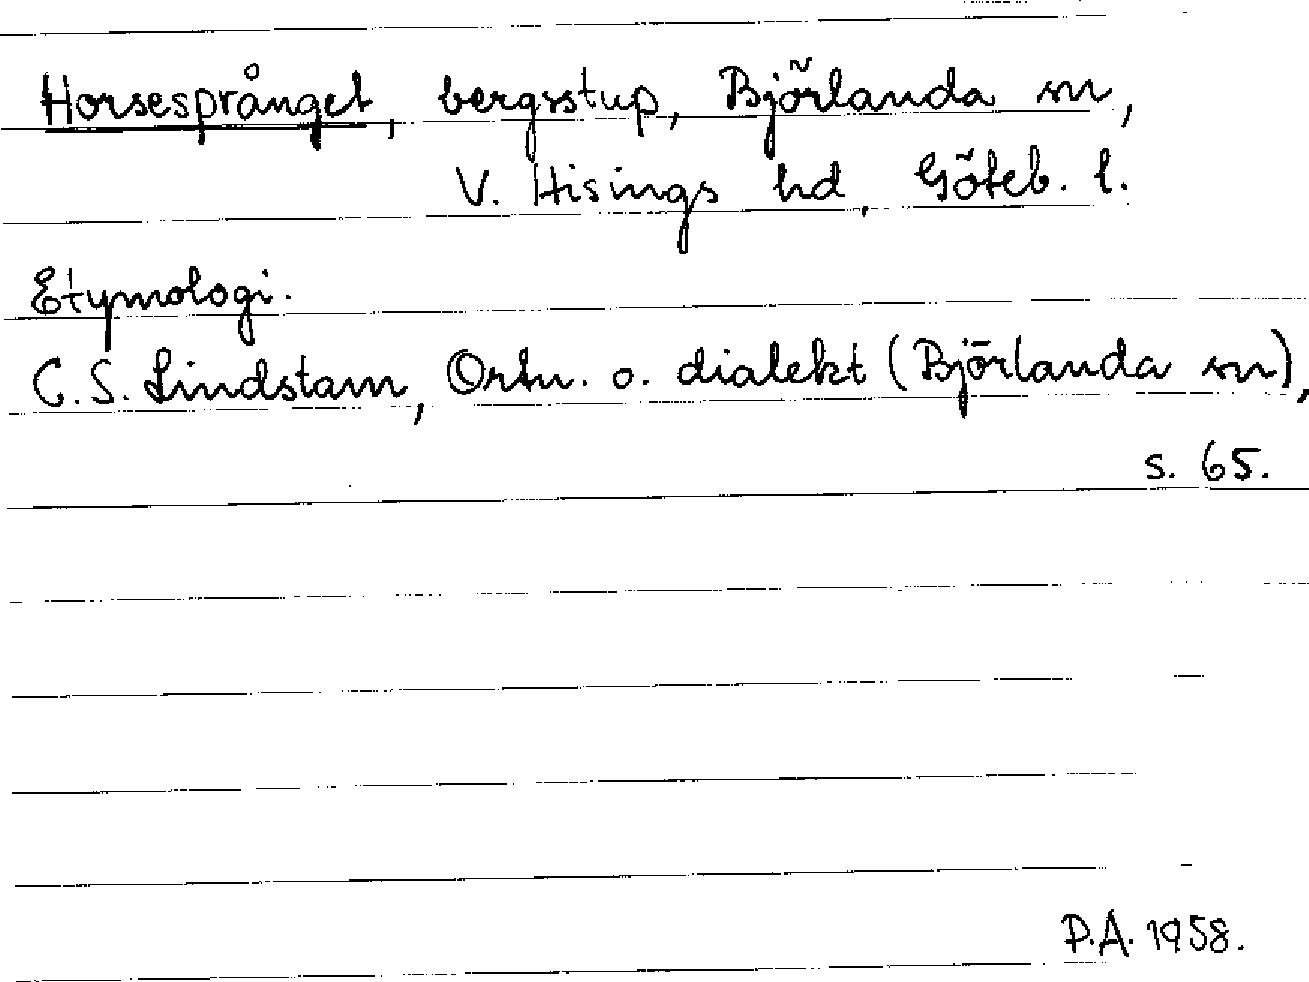 Horsesprånget, bergsstup, Björlanda sn,
V. Hisings hd, Göteb. l.
Etymologi.
C.S. Lindstam, Ortn. o. dialekt (Björlanda sn),
s. 65.
P.A. 1958.